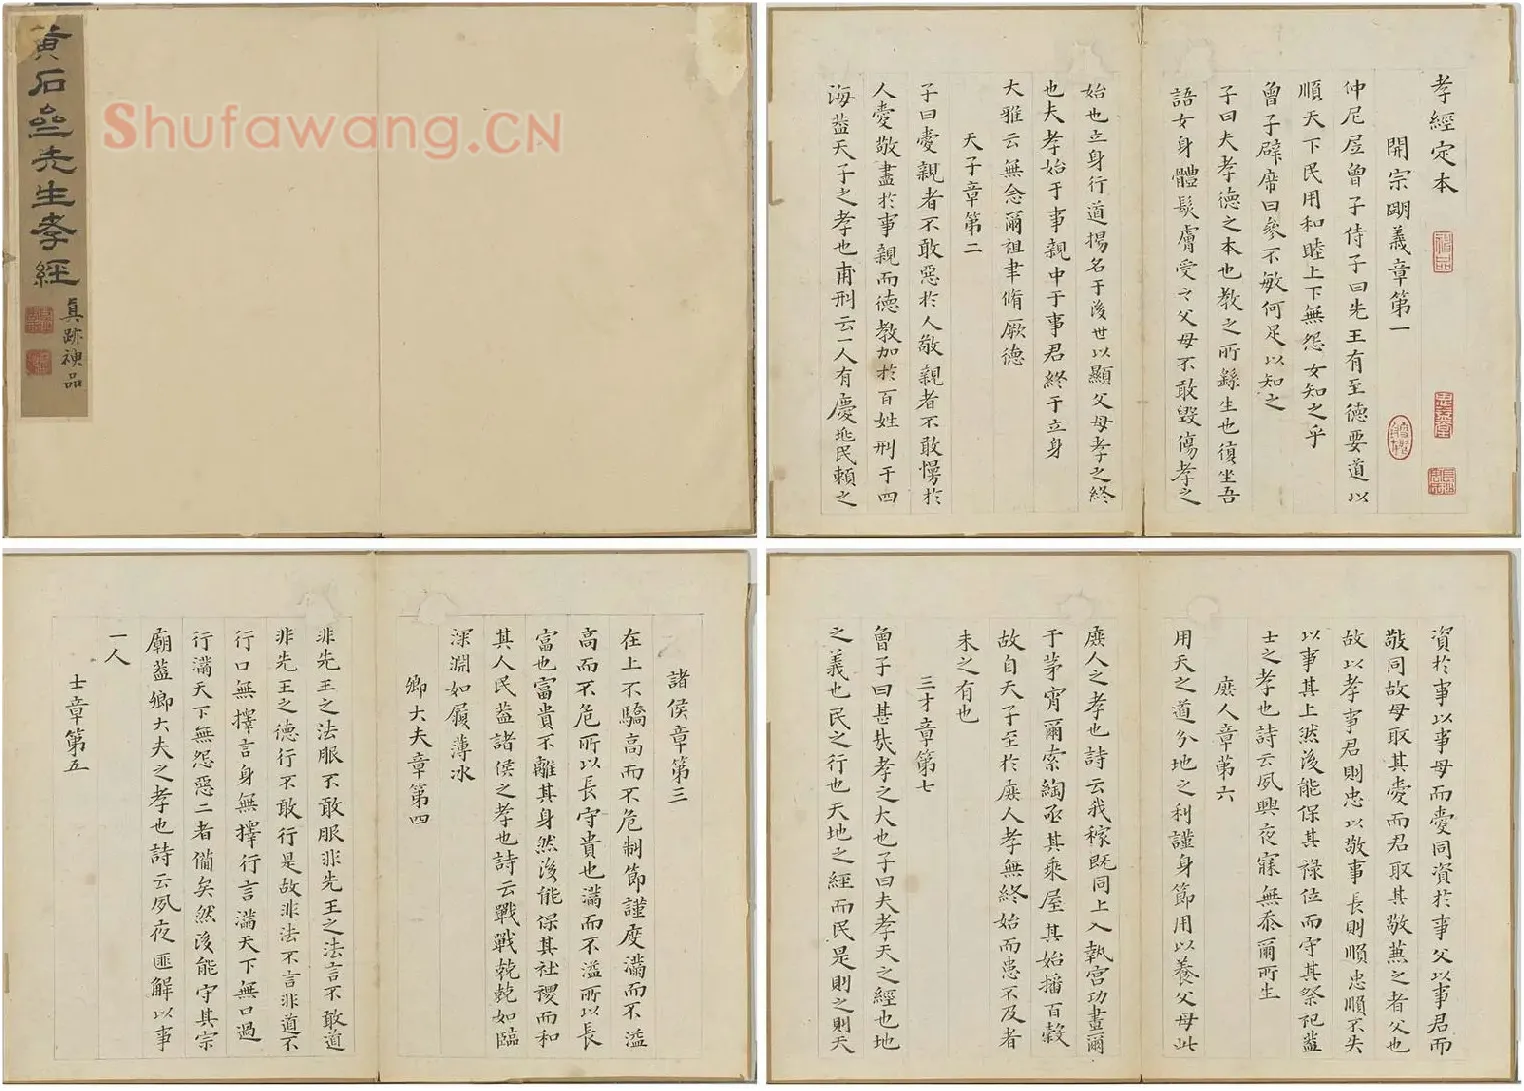 黃石齋先生孝經
真跡神品
Shufawang.CN
孝經定本
開宗明義章第一
仲尼凥曾子侍子曰先王有至德要道以
順天下民用和睦上下無怨女知之乎
曾子辟席曰參不敏何足以知之
子曰夫孝德之本也教之所繇生也復坐吾
語女身體髮膚受之父母不敢毀傷孝之
始也立身行道揚名于後世以顯父母孝之終
也夫孝始于事親中于事君終于立身
大雅云無念爾祖聿脩厥德
天子章第二
子曰愛親者不敢惡於人敬親者不敢慢於
人愛敬盡於事親而德教加於百姓刑于四
海葢天子之孝也甫刑云一人有慶兆民賴之
諸侯章第三
在上不驕高而不危制節謹度滿而不溢
高而不危所以長守貴也滿而不溢所以長
富也富貴不離其身然後能保其社稷而和
其人民葢諸侯之孝也詩云戰戰兢兢如臨
深淵如履薄冰
卿大夫章第四
非先王之法服不敢服非先王之法言不敢道
非先王之德行不敢行是故非法不言非道不
行口無擇言身無擇行言滿天下無口過
行滿天下無怨惡二者備矣然後能守其宗
廟葢卿大夫之孝也詩云夙夜匪解以事
一人
士章第五
資於事以事母而愛同資於事父以事君而
敬同故母取其愛而君取其敬兼之者父也
故以孝事君則忠以敬事長則順忠順不失
以事其上然後能保其祿位而守其祭祀葢
士之孝也詩云夙興夜寐無忝爾所生
庶人章第六
用天之道分地之利謹身節用以養父母此
庶人之孝也詩云我稼既同上入執宮功晝爾
于茅宵爾索綯亟其乘屋其始播百穀
故自天子至於庶人孝無終始而患不及者
未之有也
三才章第七
曾子曰甚哉孝之大也子曰夫孝天之經也地
之義也民之行也天地之經而民是則之則天